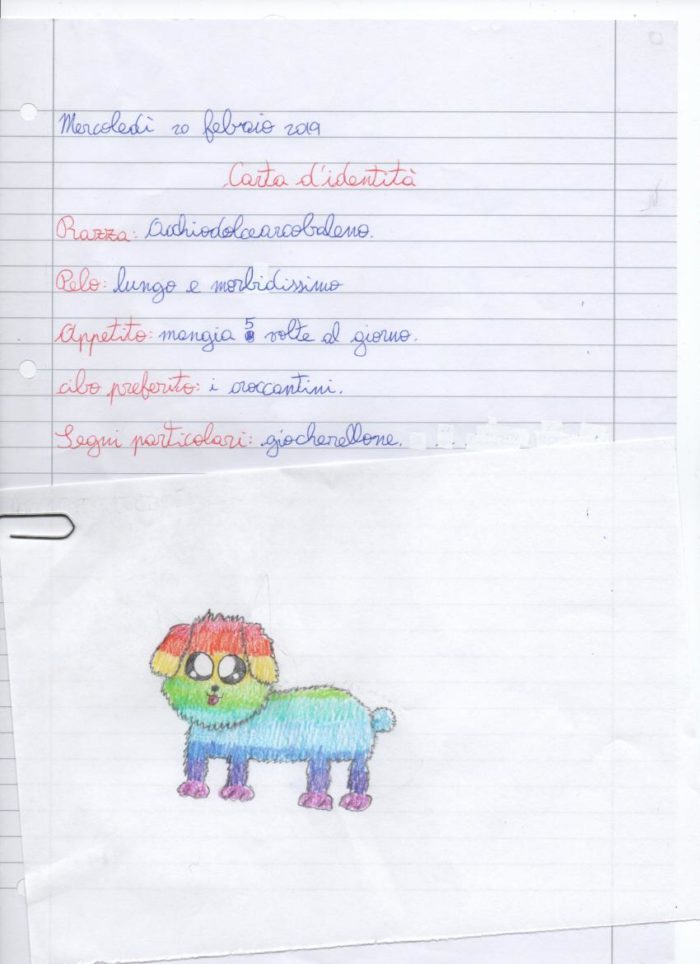 Mercoledì 20 febraio 2019
Carta d'identità
Razza: Occhiodolcearcobaleno.
Pelo: lungo e morbidissimo
Appetito: mangia 5 volte al giorno.
cibo preferito: i croccantini.
Segni particolari: giocherellone.